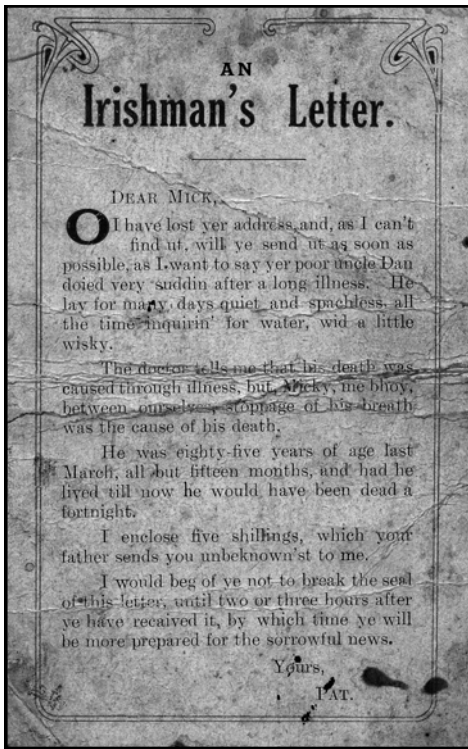 AN
Irishman's Letter.
DEAR MICK,
OI have lost yer address, and, as I can't
find ut, will ye send ut as soon as
possible, as I want to say yer poor uncle Dan
doied very suddin after a long illness. He
lay for many days quiet and spachless, all
the time inquirin' for water, wid a little
wisky.
The doctor tells me that his death was
caused through illness, but, Micky, me bhoy,
between ourselves, stoppage of his breath
was the cause of his death.
He was eighty-five years of age last
March, all but fifteen months, and had he
lived till now he would have been dead a
fortnight.
I enclose five shillings, which your
father sends you unbeknown'st to me.
I would beg of ye not to break the seal
of this letter, until two or three hours after
ye have recaived it, by which time ye will
be more prepared for the sorrowful news.
Yours,
PAT.